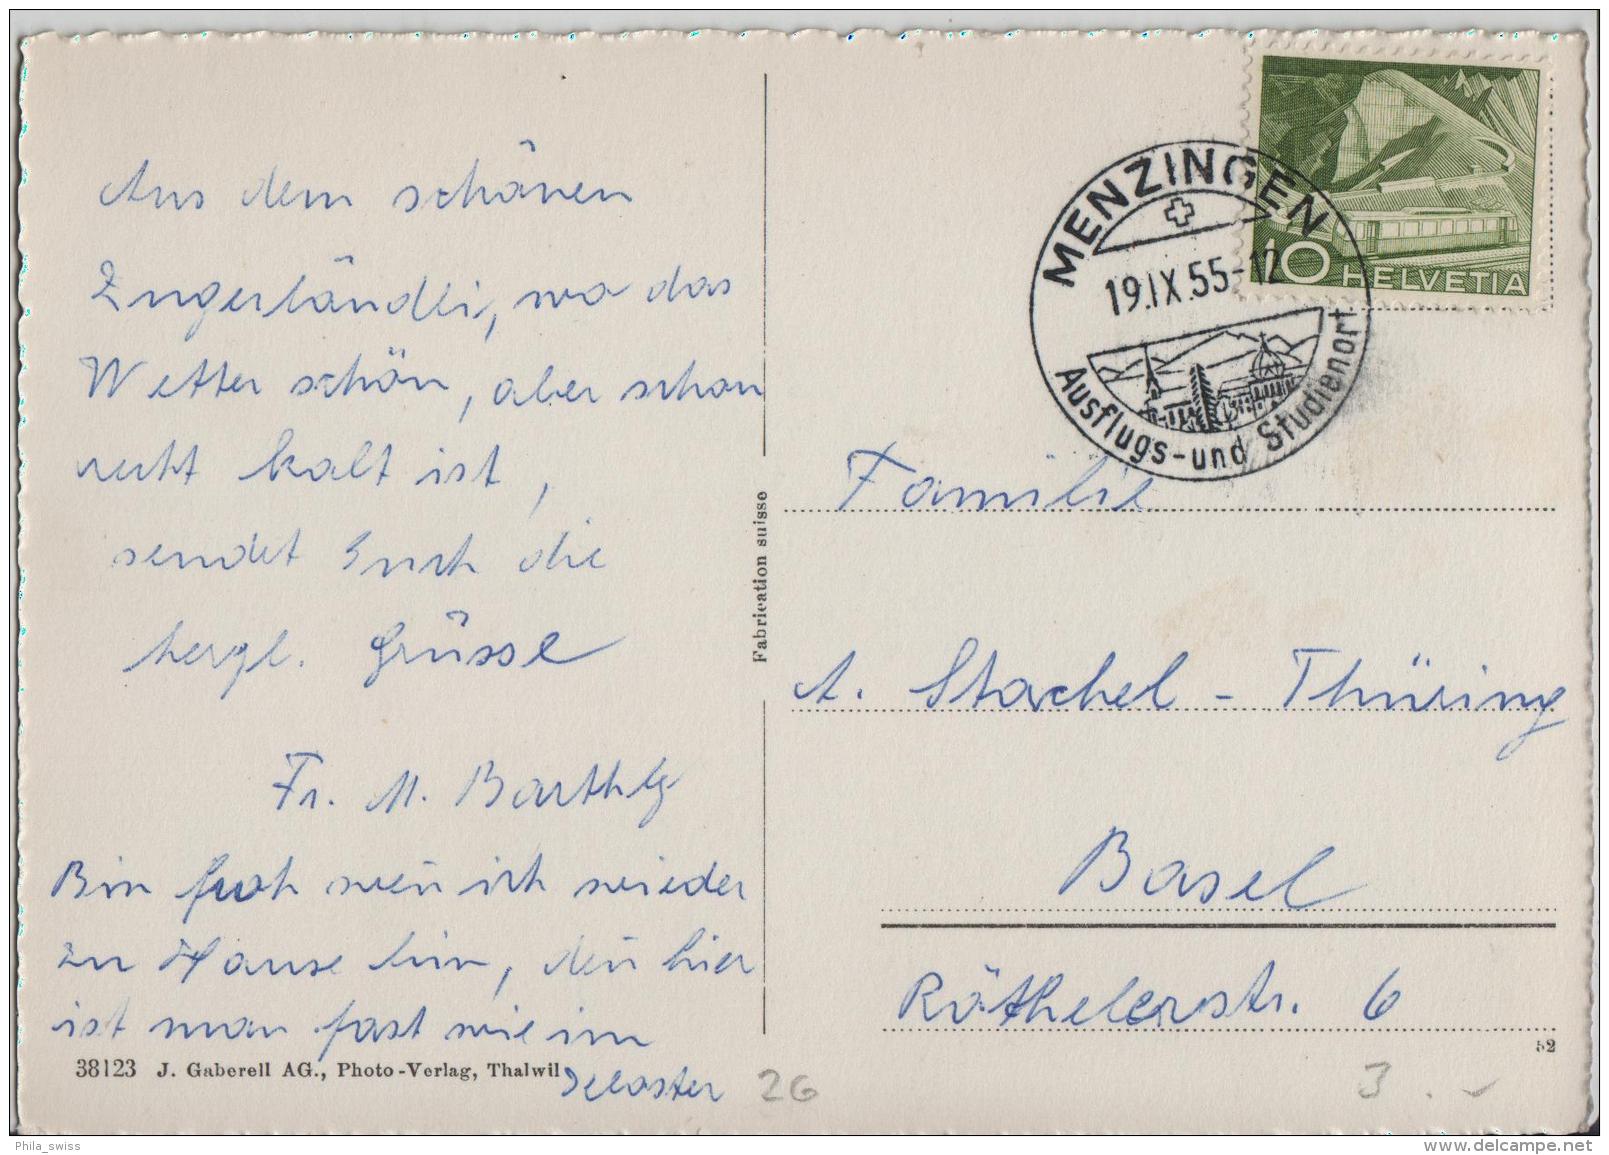 Aus dem schönen
Zugerländli, wo das
Wetter schön, aber schon
recht kalt ist,
sendet Euch die
herzl. Grüsse
Fr. M. Barthly
Bin froh wen̄ ich wieder
zu Hause bin, den̄ hier
ist man fast wie im
Kloster
38123 J. Gaberell AG., Photo-Verlag, Thalwil
26
Fabrication suisse
HELVETIA
10
MENZINGEN
19.IX.55-12
Ausflugs- und Studienort
Familie
A. Stachel - Thüring
Basel
Rötelerstr. 6
52
3.
Phila_swiss
www.delcampe.net